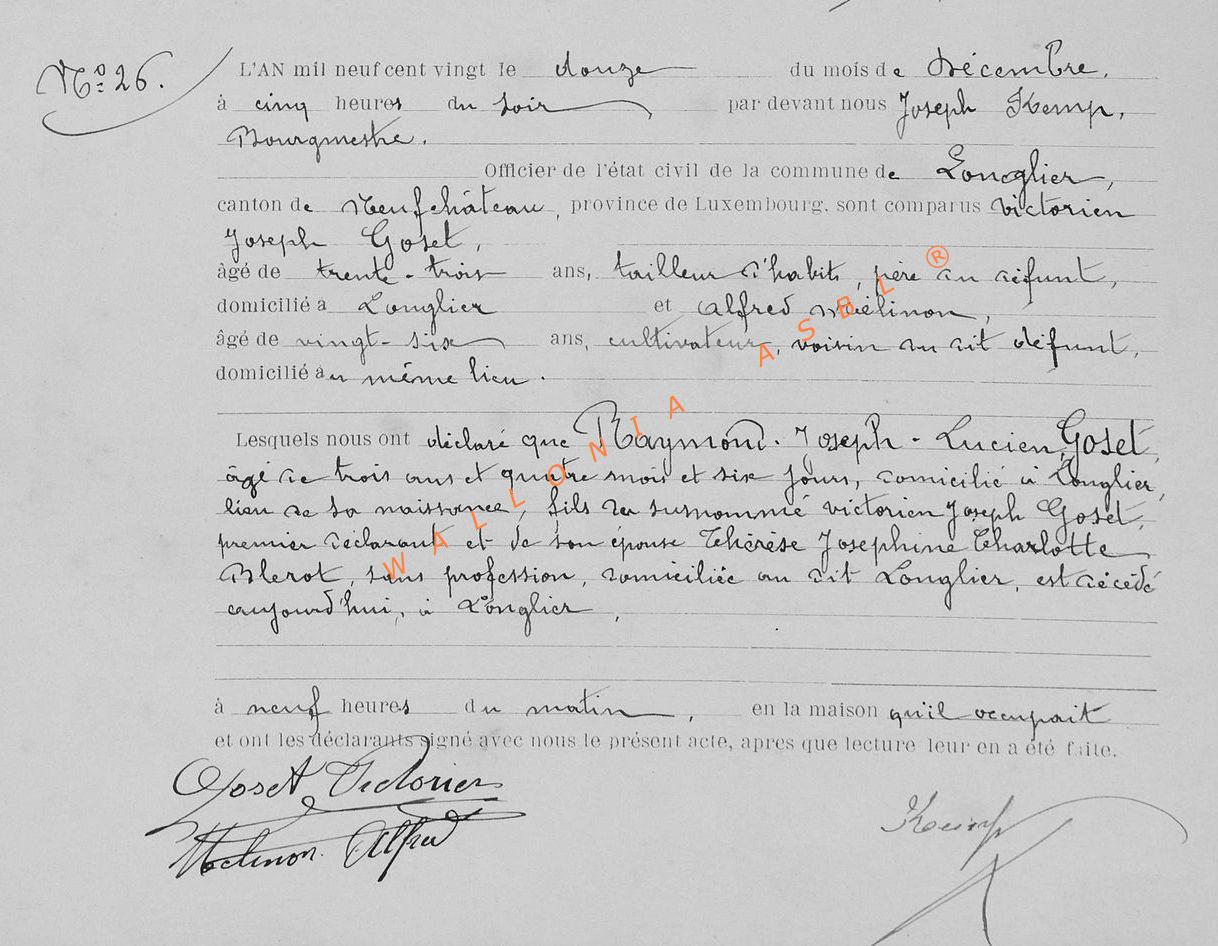 N° 26.
L'AN mil neuf cent vingt le douze du mois de Décembre,
à cinq heures du soir par devant nous Joseph Kemp,
Bourgmestre.
Officier de l'état civil de la commune de Longlier,
canton de Neufchâteau, province de Luxembourg, sont comparus Victorien
Joseph Goset,
âgé de trente-trois ans, tailleur d'habits, père du défunt,
domicilié à Longlier et Alfred Mélinon,
âgé de vingt-six ans, cultivateur, voisin du dit défunt,
domicilié au même lieu.
Lesquels nous ont déclaré que Raymond-Joseph-Lucien Goset,
âgé de trois ans et quatre mois et six jours, domicilié à Longlier,
lieu de sa naissance, fils du susnommé Victorien Joseph Goset,
premier déclarant et de son épouse Thérèse Josephine Charlotte
Blerot, sans profession, domiciliée au dit Longlier, est décédé
aujourd'hui, à Longlier,
à neuf heures du matin, en la maison qu'il occupait
et ont les déclarants signé avec nous le présent acte, apres que lecture leur en a été faite.
Goset Victorien
Melinon Alfred
Kemp
WALLONIA ASBL ®